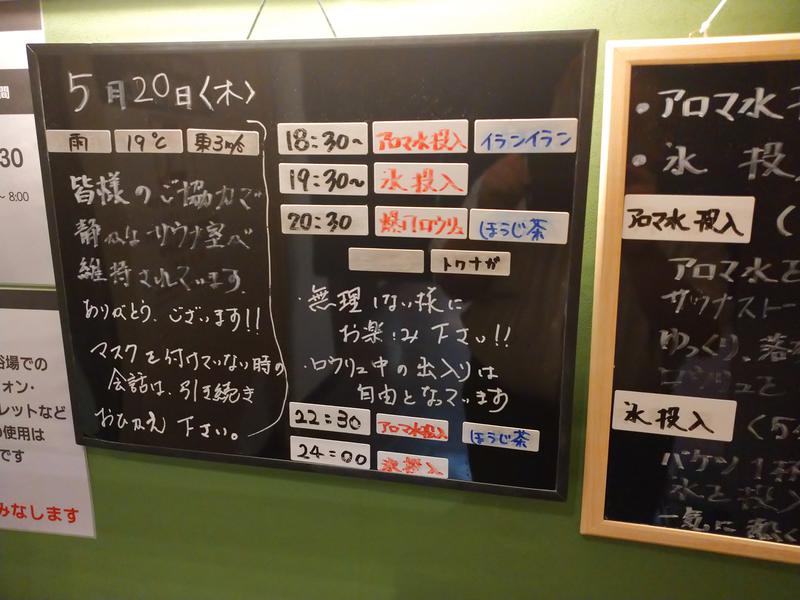 間
30
~ 8:00
浴場での
ォン・
レットなど
の使用は
です
みなします
5月20日〈木〉
雨 19℃ 東3m/s
皆様のご協力で
静かなサウナ室が
維持されています。
ありがとう、ございます!!
マスクを付けていない時の
会話は、引き続き
おひかえ下さい。
18:30~ アロマ水投入 イランイラン
19:30~ 氷投入
20:30 爆アロウリュ ほうじ茶
トクナガ
・無理しない様に
お楽しみ下さい!!
・ロウリュ中の出入りは
自由となっています
22:30 アロマ水投入 ほうじ茶
24:00 氷投入
・アロマ水
・氷 投
アロマ水投入 〈
アロマ水を
サウナストー
ゆっくり、落
ロウリュを
氷投入 〈5
バケツ1杯
氷を投入
一気に熱く